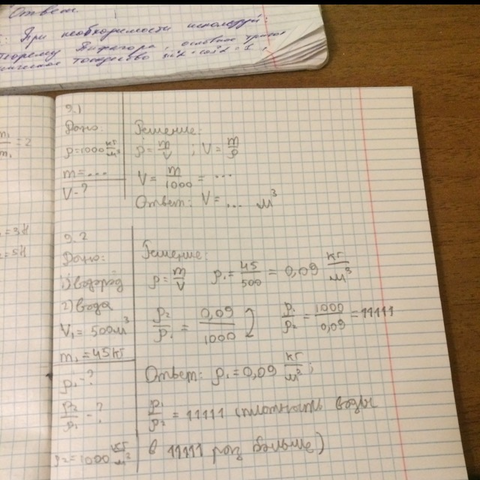 Ответ
При необходимости используй
теорему Пифагора, основное
тождество
9.1
Дано:
ρ=1000 кг/м³
m=...
V-?
Решение:
ρ=m/V ; V=m/ρ
V=m/1000=...
Ответ: V=... м³
9.2
Дано:
1) водород
2) вода
V₁=500м³
m₁=45кг
ρ₁-?
ρ₂/ρ₁-?
ρ₂=1000 кг/м³
Решение:
ρ=m/V ρ₁=45/500=0,09 кг/м³
ρ₂/ρ₁=0,09/1000 ρ₁/ρ₂=1000/0,09=11111
Ответ: ρ₁=0,09 кг/м³;
ρ₁/ρ₂=11111 (плотность воды
в 11111 раз больше)